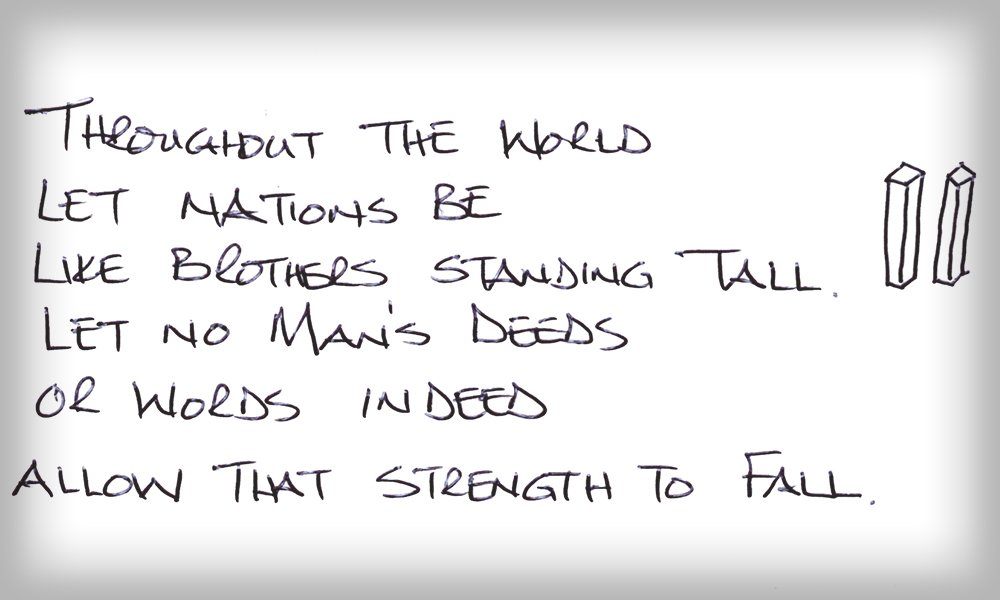 THROUGHOUT THE WORLD
LET NATIONS BE
LIKE BROTHERS STANDING TALL.
LET NO MAN'S DEEDS
OR WORDS INDEED
ALLOW THAT STRENGTH TO FALL.